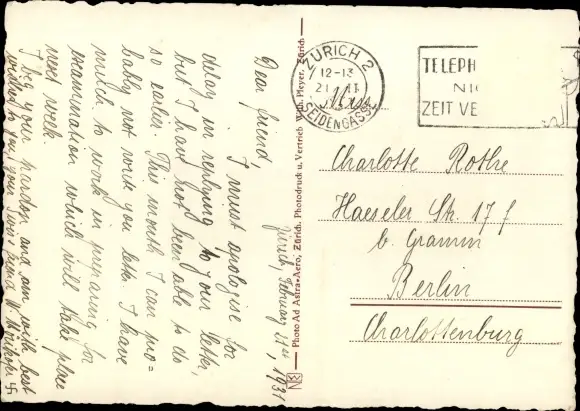 Zürich, February 21st, 1931
Dear friend,
I must apologise for
delay in replying to your letter,
but I had not been able to do
so earlier. This month I can pro=
bably not write you letter. I have
much to work in preparing for
examination which will take place
next week.
I beg your pardon and am with best
wishes to you, your Swiss friend
Photo Ad Astra-Aero, Zürich. Photodruck u. Vertrieb Wilh. Pleyer, Zürich
ZÜRICH 2
12-13
21 II
SEIDENGASSE
TELEPH
NI
ZEIT VE
Miss
Charlotte Rothe
Haeseler Str. 17 f
b. Gramm
Berlin
Charlottenburg